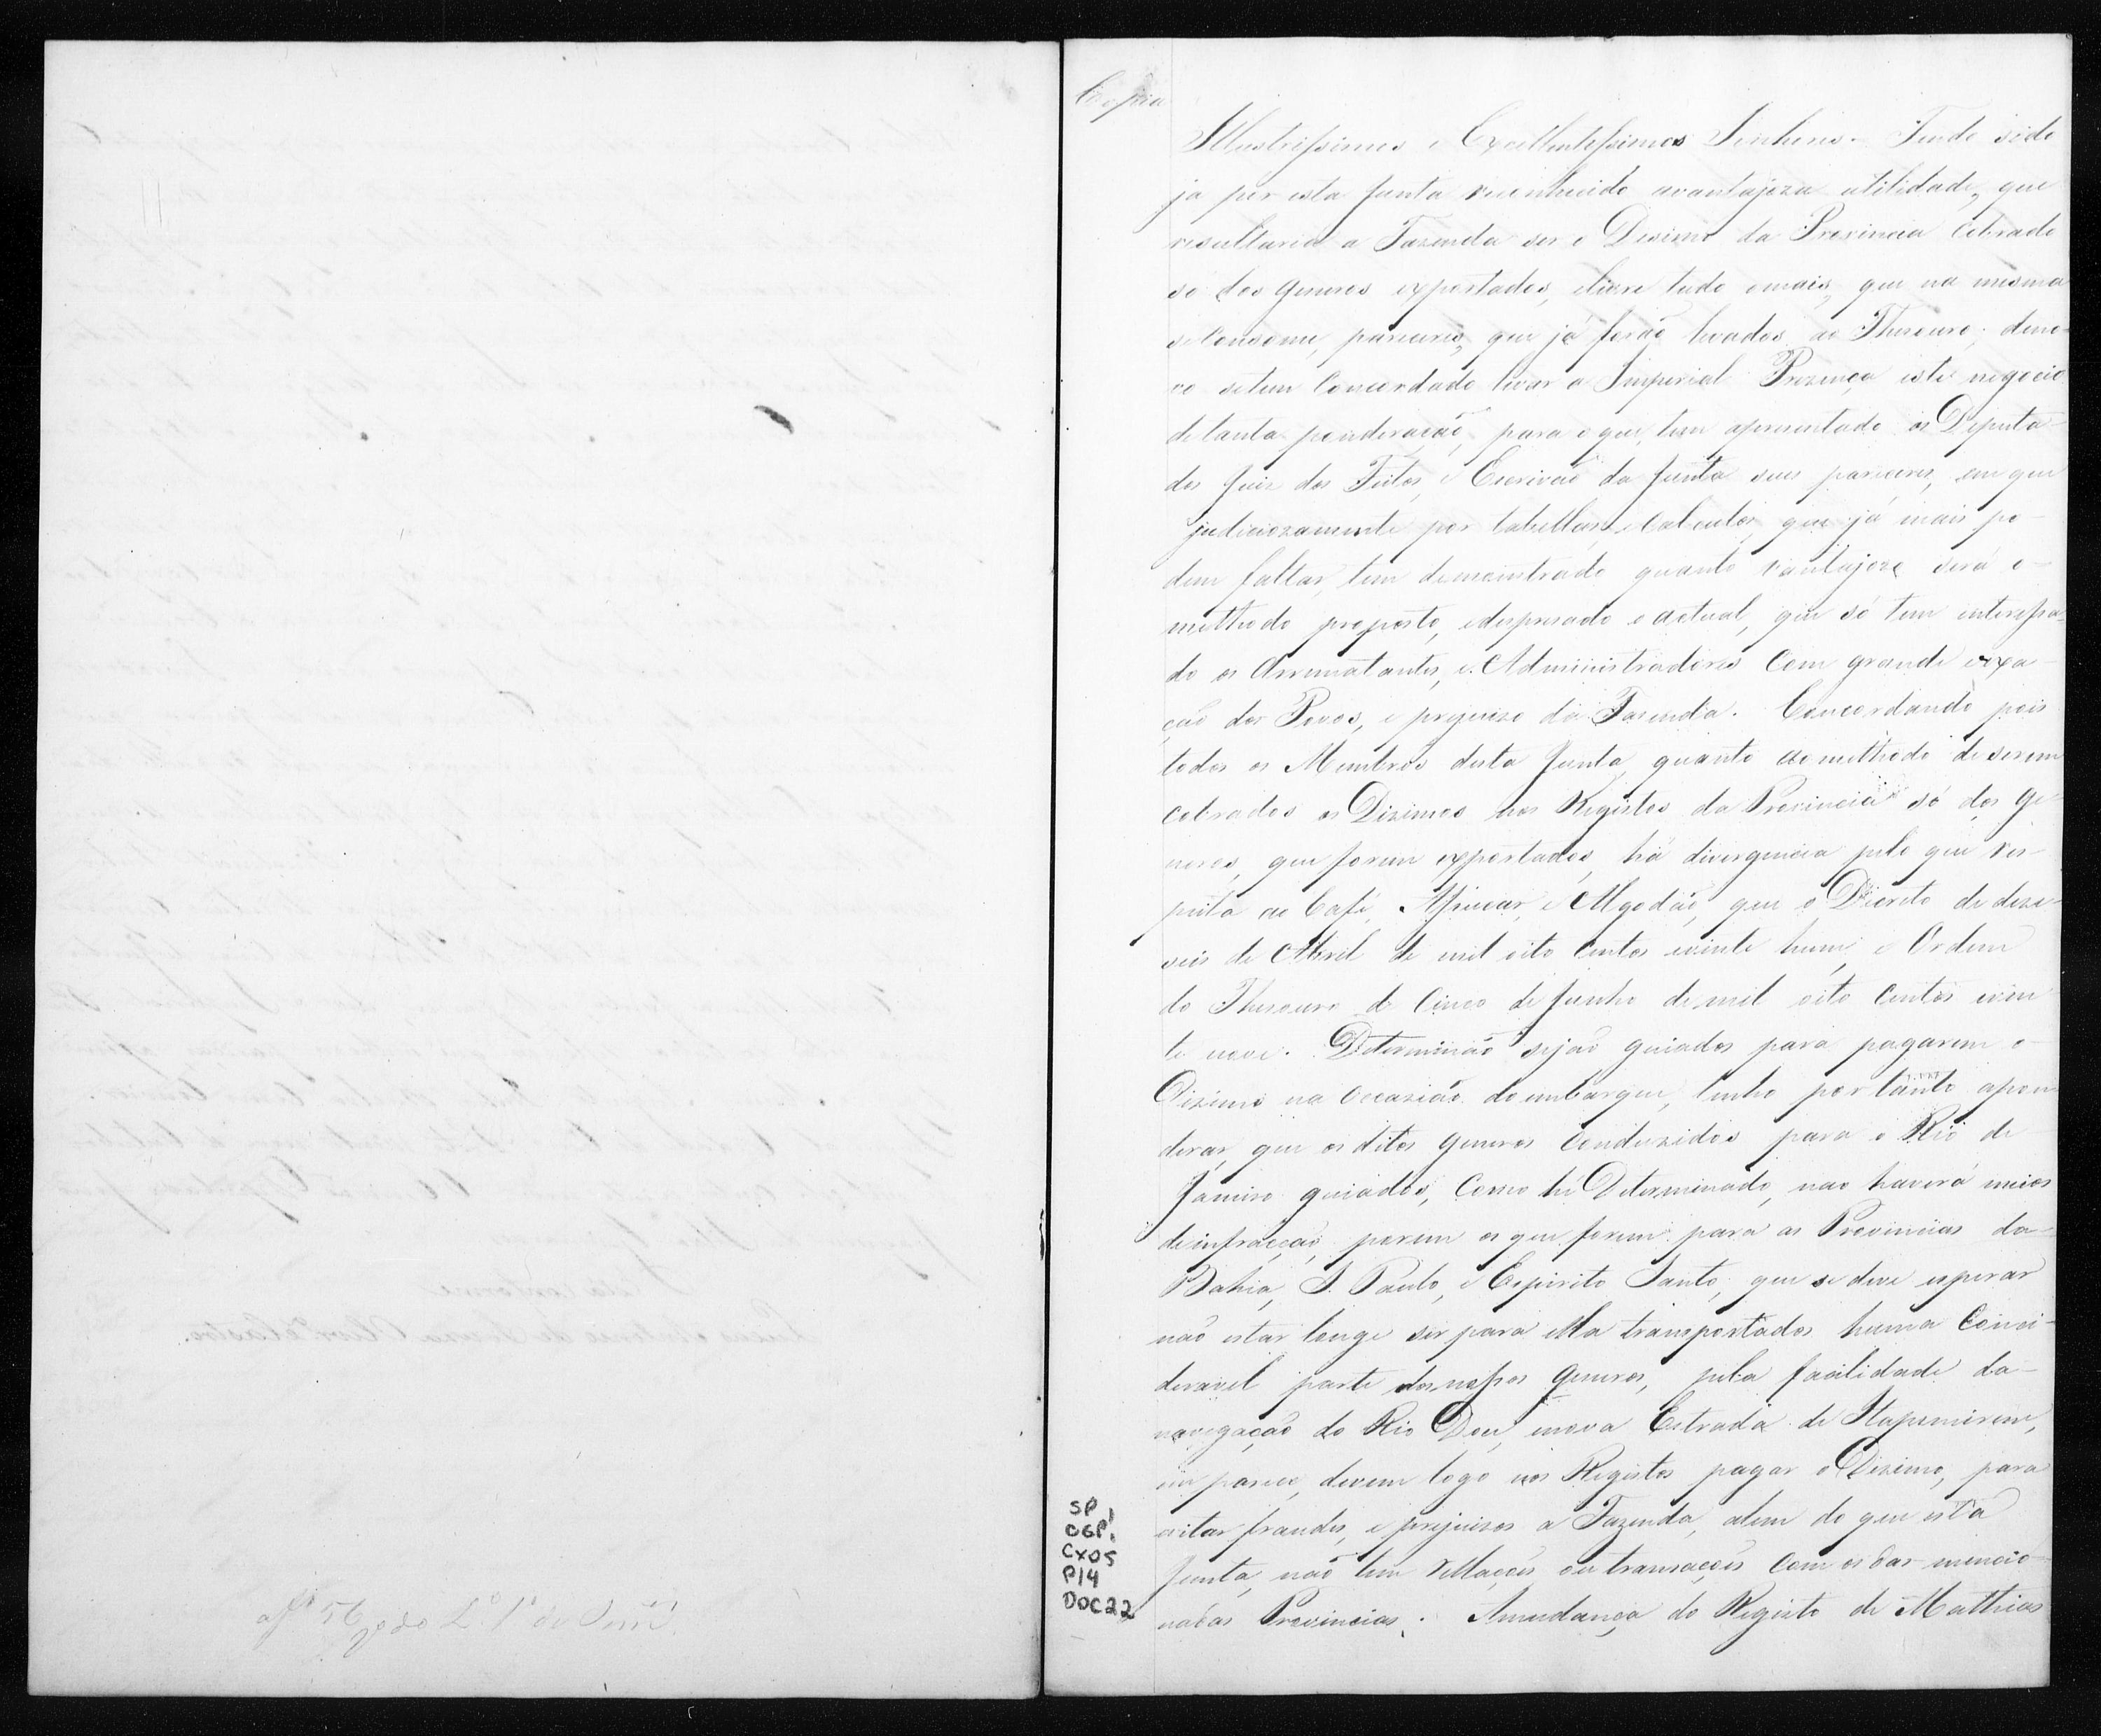 Copia
Illustrissimos e Excellentissimos Senhores - Tendo sido
ja por esta Junta reconhecido avantajoza utilidade, que
resultaria a Fazenda ser o Desimo da Provincia Cobrado
so dos generos exportados, e livre tudo omais, que na mesma
se Consome, pareceres, que já forão levados ao Thesouro; deno-
vo setem Concordado levar a Imperial Prezença este negocio
detanta ponderação, para oque tem apresentado os Deputa-
dos Juiz dos Feitos, e Escrivão da Junta seus pareceres, em que
judiciozamente por tabellas, e Calculos, que já mais po-
dem faltar, tem demonstrado quanto vantajozo será o-
methodo proposto, edespresado o actual, que só tem interessa-
do os Arrematantes, e Administradores Com grande vexa-
ção dos Povos, e prejuizo da Fazenda. Concordando pois
todos os Membros desta Junta quanto aomethodo de serem
Cobrados os Dizimos nos Registos da Provincia só dos ge-
neros, que forem exportados, há divergencia pelo que res-
peita ao Café, Assucar, e Algodão, que o Decreto de deze-
seis de Abril de mil oito Centos evinte hum, e Ordem
do Thesouro de Cinco de Junho de mil oito Centos evin
te nove. Determinão sejão guiados para pagarem o-
Dizimo na Occazião do embarque, tenho por tanto apon
derar, que os ditos generos Conduzidos para o Rio de
Janeiro guiados, Como hé Determinado, nao haverá meios
deinfracção, porem os que forem para as Provincias da-
Bahia, S. Paulo, e Espirito Santo, que se deve esperar
não estar longe ser para ella transportados huma Consi-
deravel parte dos nossos generos, pela facilidade da-
navegação do Rio Doce, enova Estrada de Itapemirim,
me parece, devem logo nos Registos pagar o Dizimo, para
evitar fraudes, e prejuizos a Fazenda, alem do que esta
Junta, não tem rellações ou transacções Com as mencio-
nadas Provincias. Amudança do Registo de Mathias
SP
OGP!
CX05
P14
DOC22
af 56 do L.º 1º